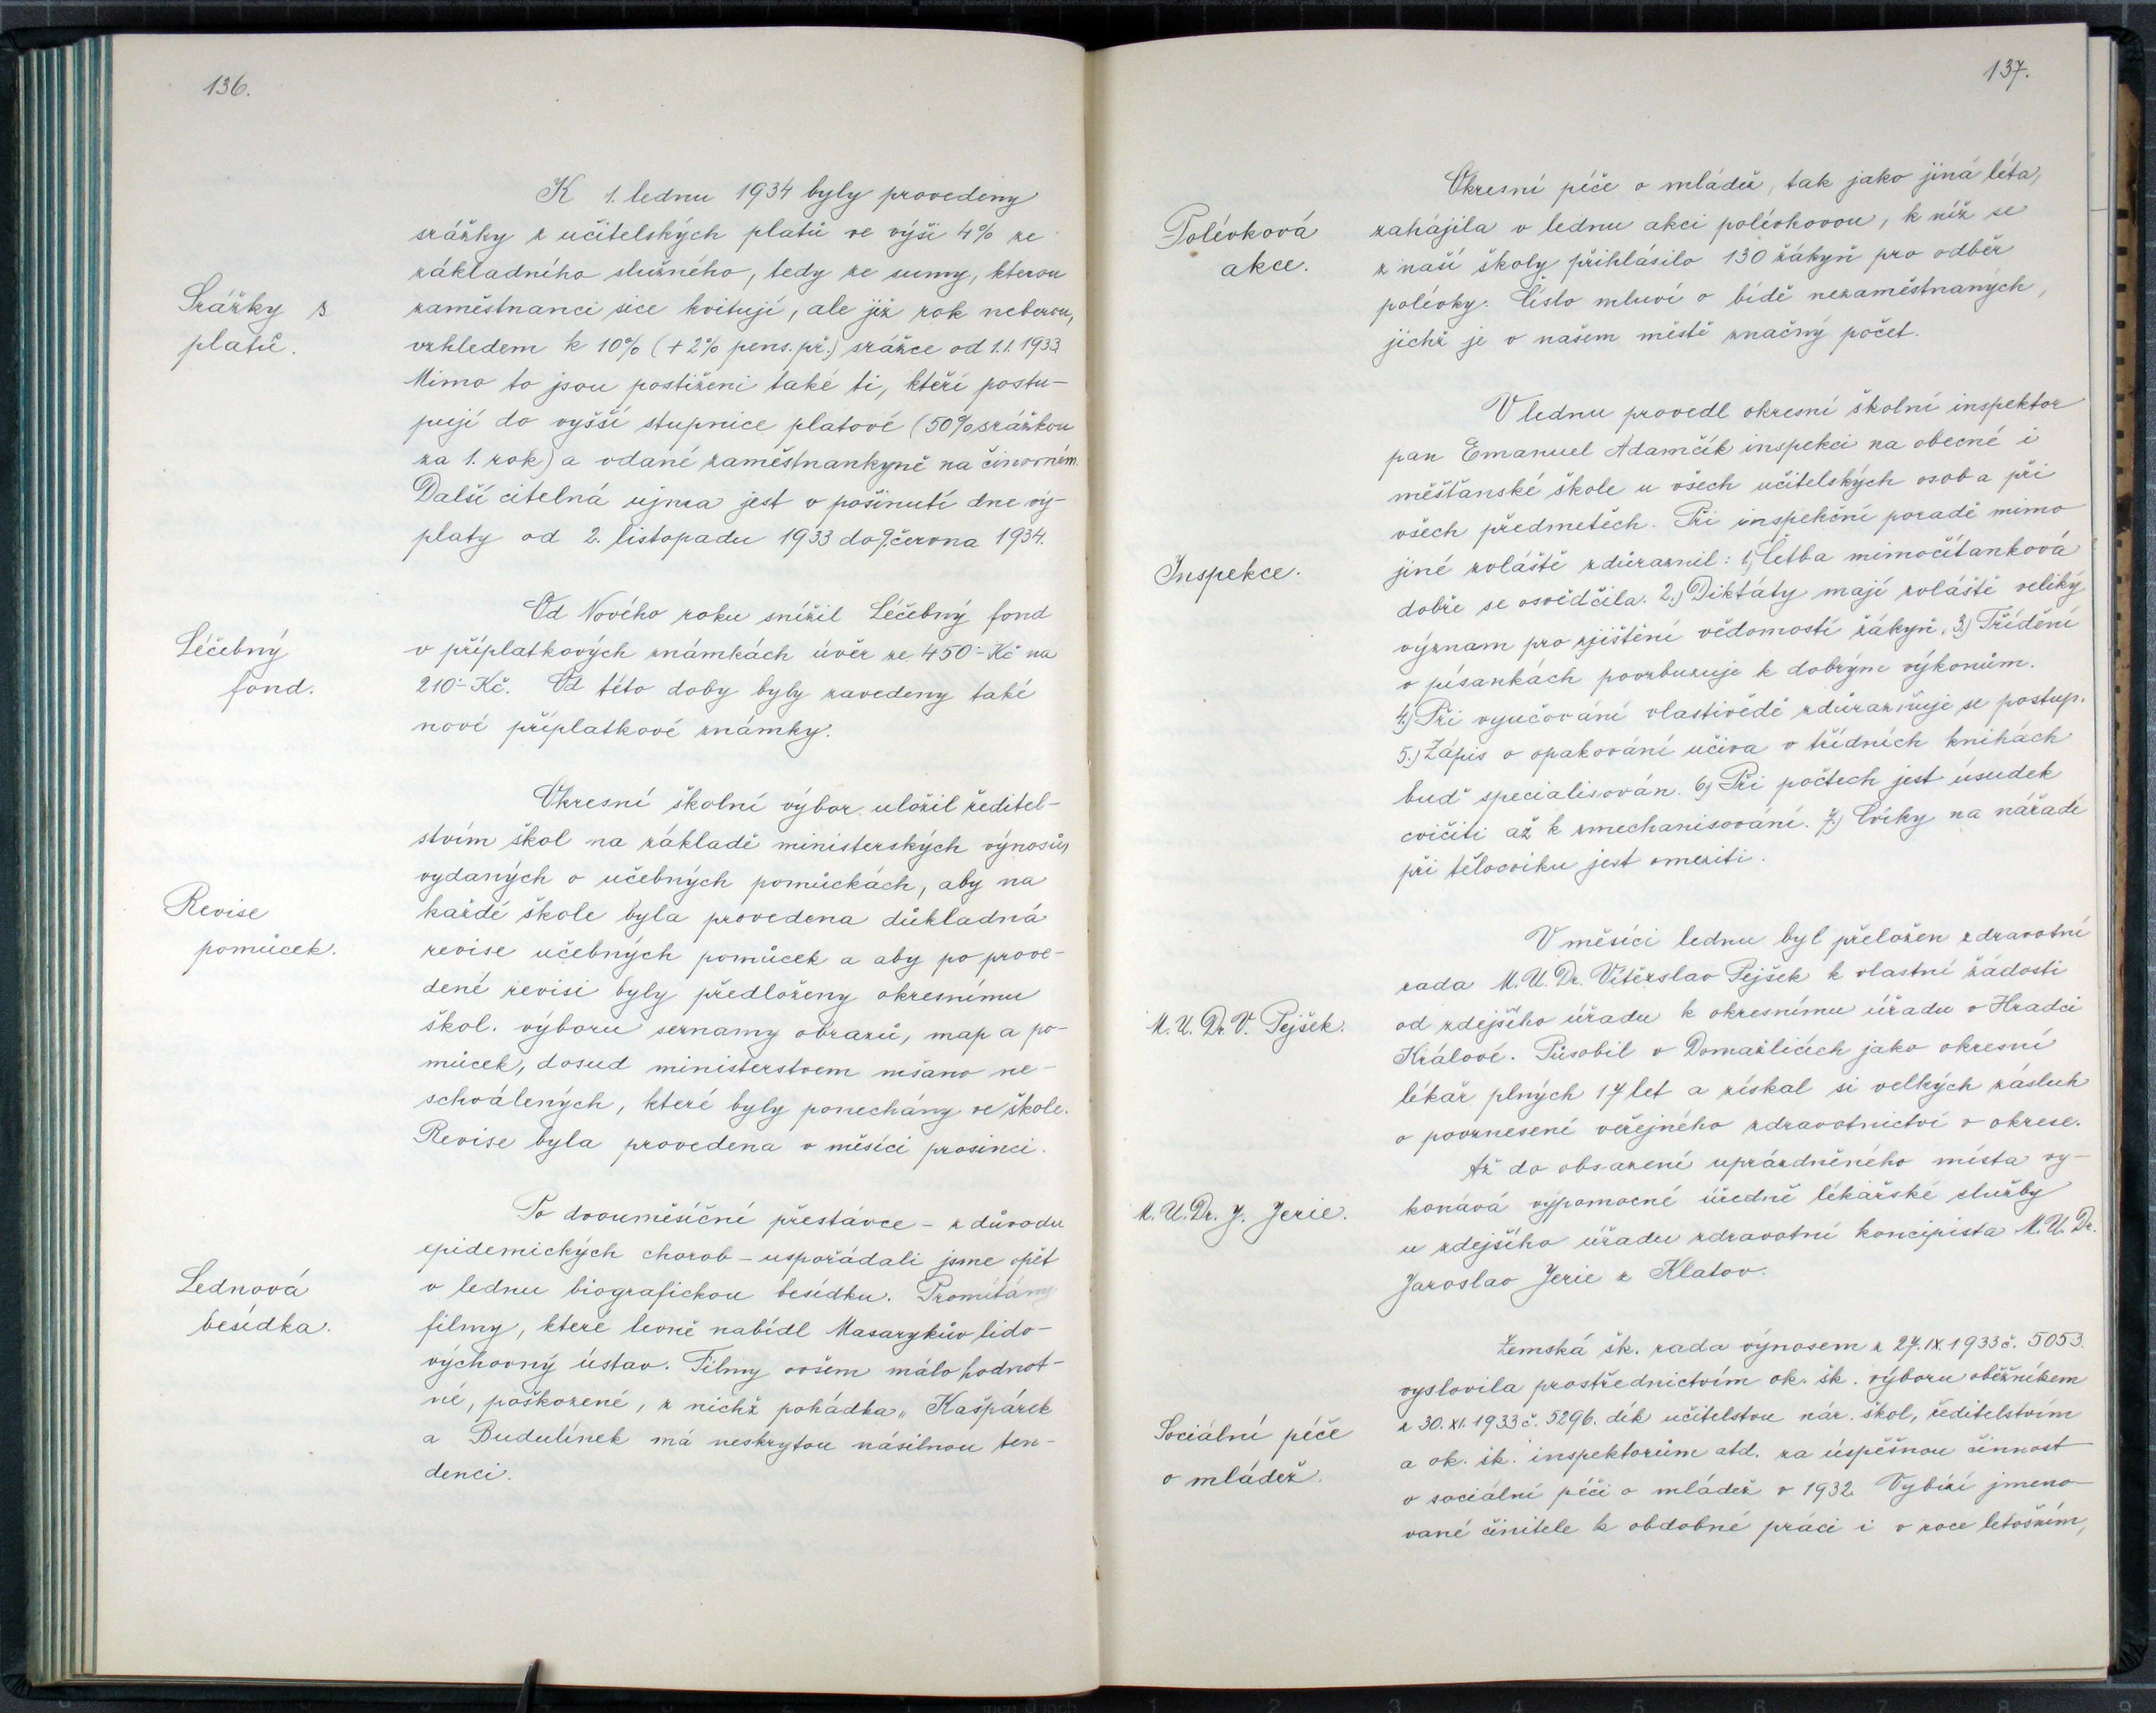 136.
K 1. lednu 1934 byly provedeny
srážky z učitelských platů ve výši 4% ze
základního služného, tedy ze sumy, kterou
Srážky z
platů.
zaměstnanci sice kvitují, ale již rok neberou,
vzhledem k 10% (+2% pens. př.) srážce od 1.1. 1933
Mimo to jsou postiženi také ti, kteří postu-
pují do vyšší stupnice platové (50% srážkou
za 1. rok) a vdané zaměstnankyně na činovném.
Další citelná újma jest v pošinutí dne vý-
platy od 2. listopadu 1933 do 9. června 1934.
Od Nového roku snížil Léčebný fond
Léčebný
fond.
v příplatkových známkách úvěr ze 450·- Kč na
210·- Kč. Od této doby byly zavedeny také
nové příplatkové známky.
Okresní školní výbor uložil ředitel-
stvím škol na základě ministerských výnosů,
vydaných o učebných pomůckách, aby na
Revise
pomůcek.
každé škole byla provedena důkladná
revise učebných pomůcek a aby po prove-
dené revisi byly předloženy okresnímu
škol. výboru seznamy obrazů, map a po-
můcek, dosud ministerstvem mšano ne-
schválených, které byly ponechány ve škole.
Revise byla provedena v měsíci prosinci.
Po dvouměsíční přestávce - z důvodu
epidemických chorob - uspořádali jsme opět
Lednová
besídka.
v lednu biografickou besídku. Promítány
filmy, které levně nabídl Masarykův lido-
výchovný ústav. Filmy ovšem málo hodnot-
né, poškozené, z nichž pohádka „ Kašpárek
a Budulínek má neskrytou násilnou ten-
denci.
137.
Okresní péče o mládež, tak jako jiná léta,
Polévková
akce.
zahájila v lednu akci polévkovou, k níž se
z naší školy přihlásilo 130 žákyň pro odběr
polévky. Číslo mluví o bídě nezaměstnaných,
jichž je v našem městě značný počet.
V lednu provedl okresní školní inspektor
pan Emanuel Adamčík inspekci na obecné i
měšťanské škole u všech učitelských osob a při
všech předmětech. Při inspekční poradě mimo
Inspekce.
jiné zvláště zdůraznil: 1.) Četba mimočítanková
dobře se osvědčila. 2.) Diktáty mají zvláště veliký
význam pro zjištění vědomostí žákyň. 3.) Třídění
v písankách povzbuzuje k dobrým výkonům.
4.) Při vyučování vlastivědě zdůrazňuje se postup.
5.) Zápis o opakování učiva v třídních knihách
buď specialisován. 6.) Při počtech jest úsudek
cvičiti až k zmechanisování. 7.) Cviky na nářadí
při tělocviku jest omeziti.
V měsíci lednu byl přeložen zdravotní
rada M. U. Dr. Vítězslav Pejšek k vlastní žádosti
M. U. Dr. V. Pejšek.
od zdejšího úřadu k okresnímu úřadu v Hradci
Králové. Působil v Domažlicích jako okresní
lékař plných 17 let a získal si velkých zásluh
o povznesení veřejného zdravotnictví v okrese.
Až do obsazení uprázdněného místa vy-
M. U. Dr. J. Jerie.
konává výpomocné úředně lékařské služby
u zdejšího úřadu zdravotní koncipista M. U. Dr.
Jaroslav Jerie z Klatov.
Zemská šk. rada výnosem z 27. IX. 1933 č. 5053.
vyslovila prostřednictvím ok. šk. výboru oběžníkem
Sociální péče
o mládež.
z 30. XI. 1933 č. 5296. dík učitelstvu nár. škol, ředitelstvím
a ok. šk. inspektorům atd. za úspěšnou činnost
v sociální péči o mládež v 1932. Vybízí jmeno-
vané činitele k obdobné práci i v roce letošním,